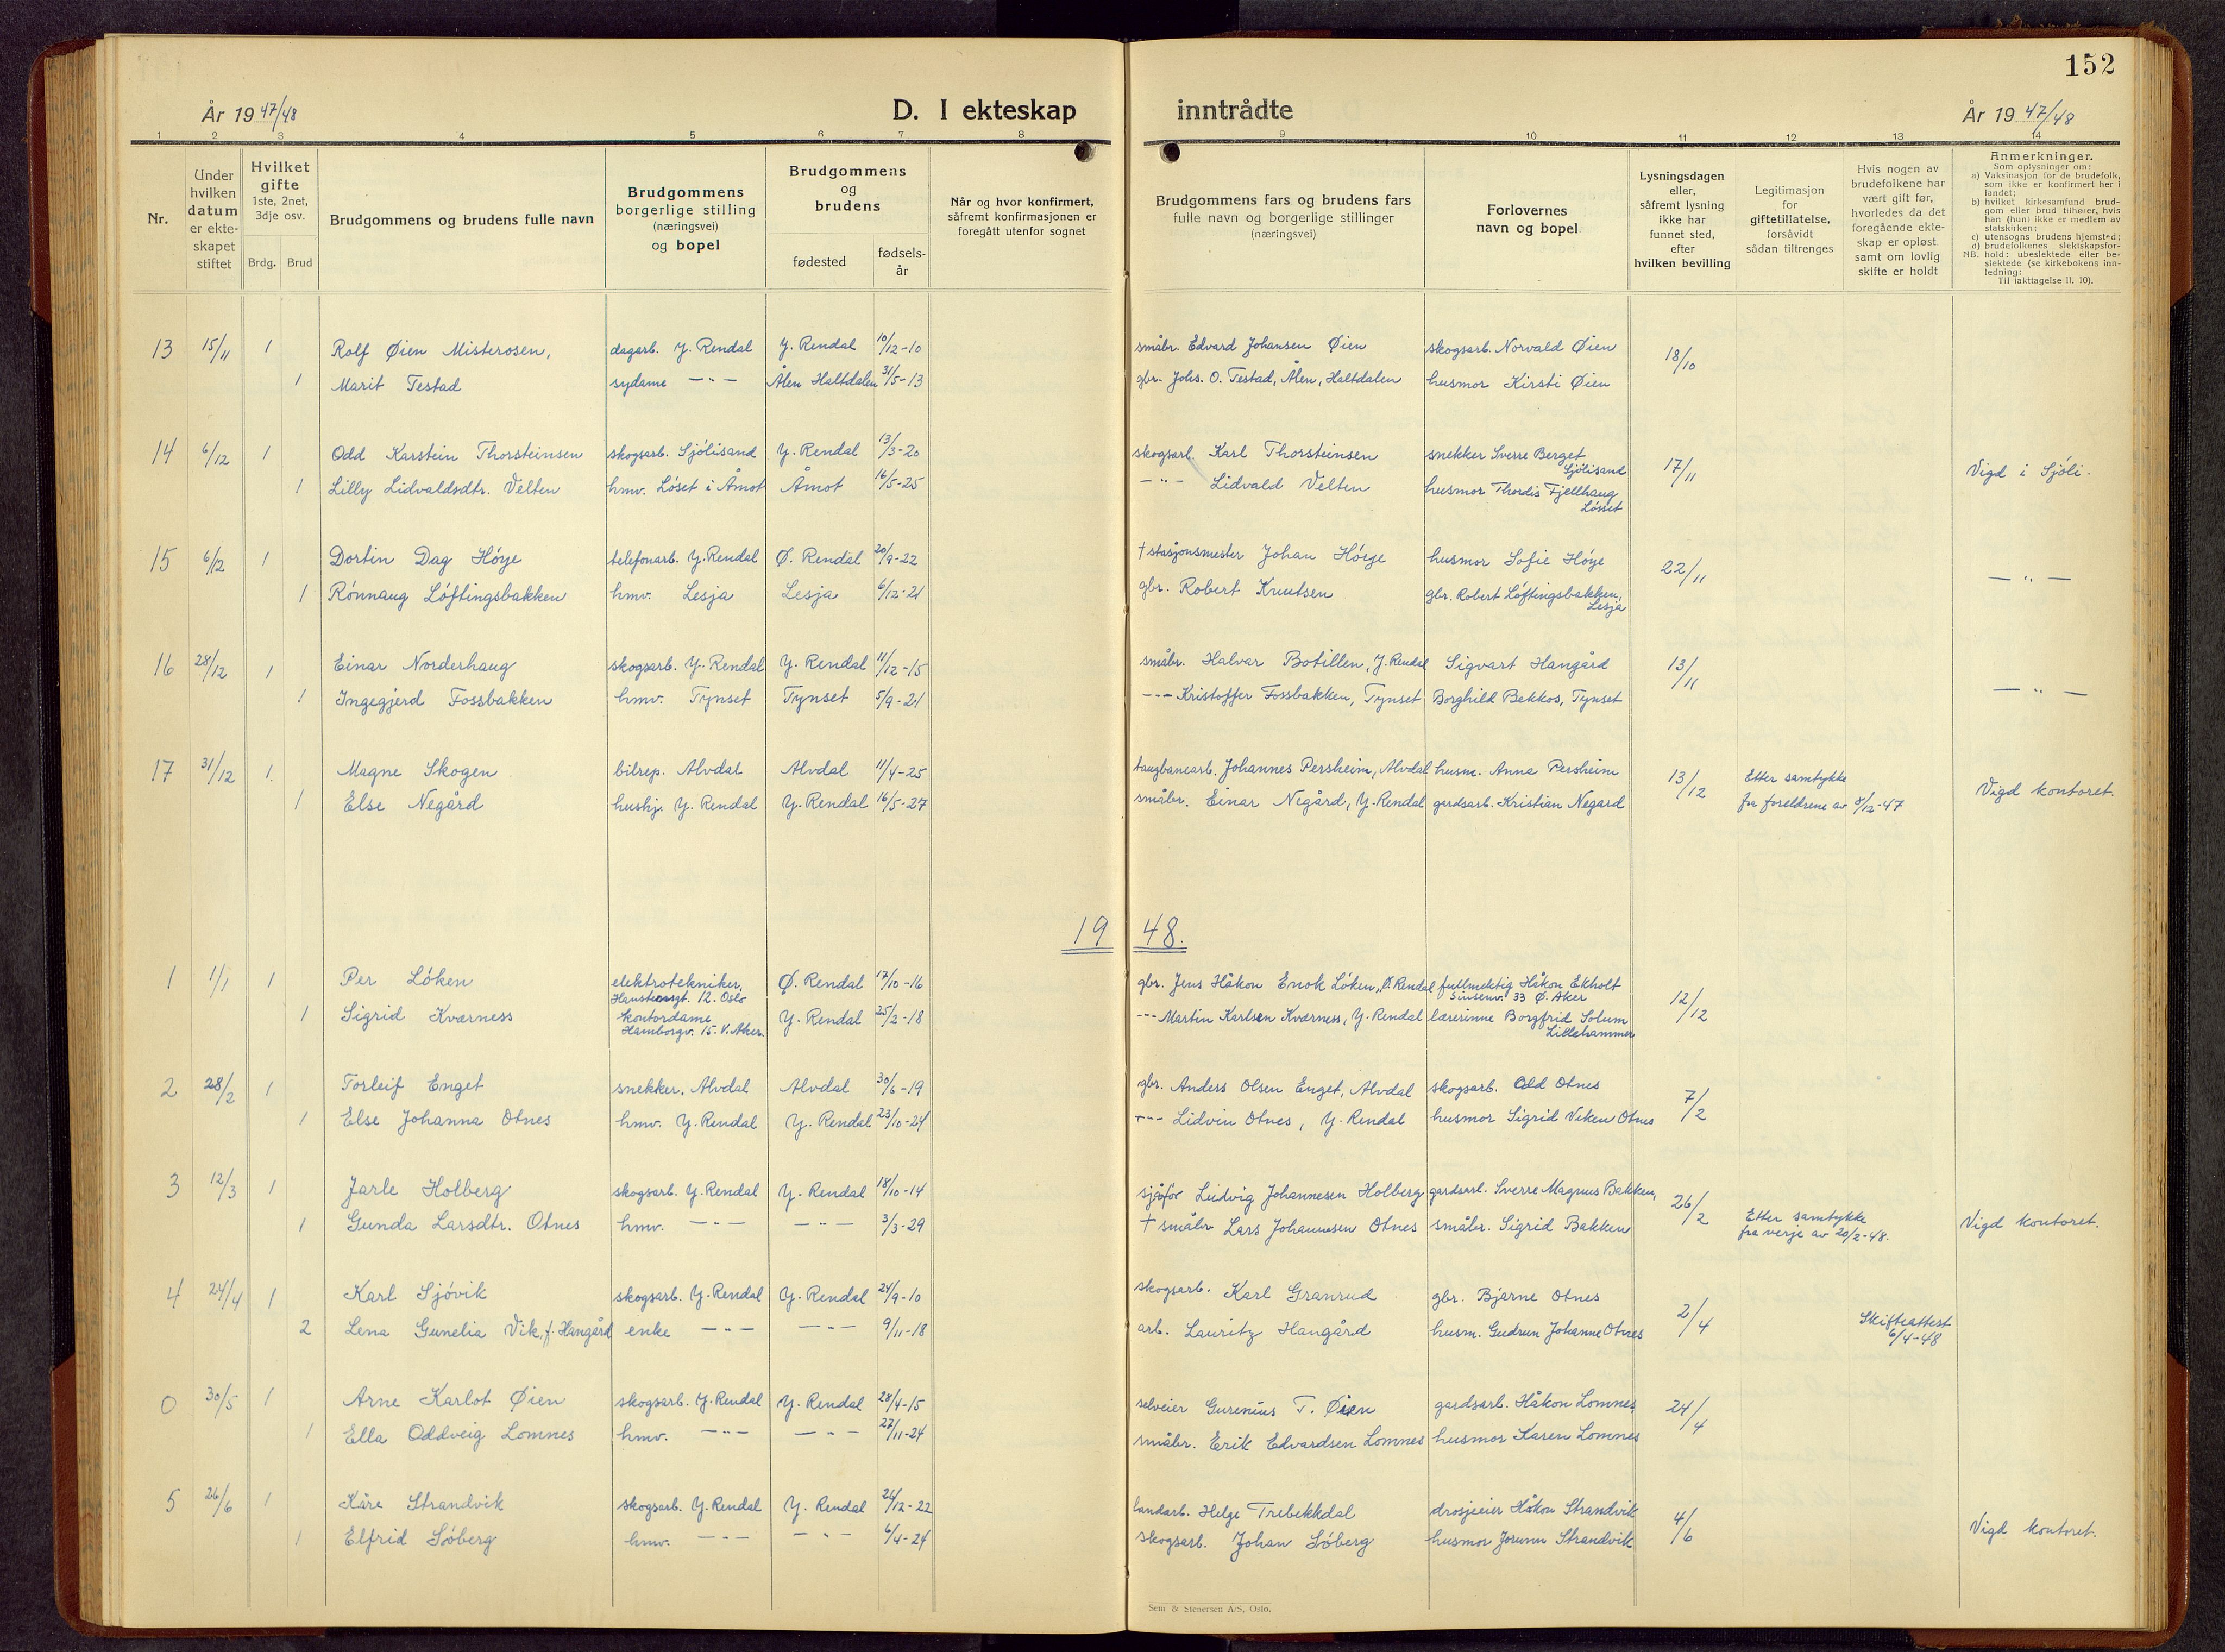 152
År 19 47/48
D. I ekteskap inntrådte
År 19 47/48
1 2 3 4 5 6 7 8 9 10 11 12 13 14
Nr.
Under hvilken datum er ekteskapet stiftet
Hvilket gifte 1ste, 2net, 3dje osv.
Brdg. Brud
Brudgommens og brudens fulle navn
Brudgommens borgerlige stilling (næringsvei) og bopel
Brudgommens og brudens
fødested
fødsels-år
Når og hvor konfirmert, såfremt konfirmasjonen er foregått utenfor sognet
Brudgommens fars og brudens fars fulle navn og borgerlige stillinger (næringsvei)
Forlovernes navn og bopel
Lysningsdagen eller, såfremt lysning ikke har funnet sted, efter hvilken bevilling
Legitimasjon for giftetillatelse, forsåvidt sådan tiltrenges
Hvis nogen av brudefolkene har vært gift før, hvorledes da det foregående ekteskap er opløst. samt om lovlig skifte er holdt
Anmerkninger.
Som oplysninger om:
a) Vaksinasjon for de brudefolk, som ikke er konfirmert her i landet;
b) hvilket kirkesamfund brudgom eller brud tilhører, hvis han (hun) ikke er medlem av statskirken;
c) utensogns brudens hjemsted;
d) brudefolkenes slektskapsforhold: ubeslektede eller beslektede (se kirkebokens innledning:
NB.
Til iakttagelse II. 10).
13 15/11 1 Rolf Øien Misterosen, dagarb. Y. Rendal Y. Rendal 10/12-10 småbr. Edvard Johansen Øien skogsarb. Norvald Øien 18/10
1 Marit Testad sydame -"- Ålen Haltdalen 31/5-13 gbr. Johs. O. Testad, Ålen, Haltdalen husmor Kirsti Øien
14 6/12 1 Odd Karstein Thorsteinsen skogsarb. Sjölisand Y. Rendal 13/3-20 skogsarb. Karl Thorsteinsen snekker Sverre Berget Sjölisand 17/11 Vigd i Sjöli.
1 Lilly Lidvaldsdtr. Velten hmv. Löset i Åmot Åmot 16/5-25 -"- Lidvald Velten husmor Thordis Fjellhaug Lösset
15 6/12 1 Dortin Dag Höye telefonarb. Y. Rendal Ø. Rendal 20/9-22 † stasjonsmester Johan Höye husmor Sofie Höye 22/11 -"-
1 Rönnaug Löftingsbakken hmv. Lesja Lesja 6/12-21 gbr. Robert Knutsen gbr. Robert Löftingsbakken, Lesja
16 28/12 1 Einar Norderhaug skogsarb. Y. Rendal Y. Rendal 11/12-15 småbr. Halvar Botillen, Y. Rendal Sigvart Hangård 13/11 -"-
1 Ingegjerd Fossbakken hmv. Tynset Tynset 5/9-21 -"- Kristoffer Fossbakken, Tynset Borghild Bekkos, Tynset
17 31/12 1. Magne Skogen bilrep. Alvdal Alvdal 11/4-25 taugbanearb. Johannes Persheim, Alvdal husm. Anna Persheim 13/12 Etter samtykke Vigd kontoret.
1 Else Negård hushj. Y. Rendal Y. Rendal 16/5-27 småbr. Einar Negård, Y. Rendal gardsarb. Kristian Negard fra foreldrene av 8/12-47
19 48.
1 1/1 1 Per Löken elektrotekniker, Hansteensgt. 12. Oslo Ø. Rendal 17/10-16 gbr. Jens Håkon Enok Löken, Ø. Rendal fullmektig Håkon Ekholt Sinsenv. 33 Ø. Aker 12/12
1 Sigrid Kværness kontordame Hamborgv. 15. V. Aker. Y. Rendal 25/2-18 -"- Martin Karlsen Kværness, Y. Rendal lærerinne Borgfrid Solum Lillehammer
2 28/2 1 Torleif Enget snekker, Alvdal Alvdal 30/6-19 gbr. Anders Olsen Enget, Alvdal skogsarb. Odd Otnes 7/2
1 Else Johanna Otnes hmv. Y. Rendal Y. Rendal 23/10-24 -"- Lidvin Otnes, Y. Rendal husmor Sigrid Veken Otnes
3 12/3 1 Jarle Holberg skogsarb. Y. Rendal Y. Rendal 18/10-14 sjåför Ludvig Johannesen Holberg gardsarb. Sverre Magnus Bakken, 26/2
1 Gunda Larsdtr. Otnes hmv. -"- -"- 3/3-29 † småbr Lars Johannesen Otnes småbr. Sigrid Bakken Etter samtykke fra verje av 20/2-48. Vigd kontoret.
4 24/4 1 Karl Sjövik skogsarb. Y. Rendal Y. Rendal 24/9-10 skogsarb. Karl Granrud gbr. Bjarne Otnes 2/4
2 Lena Gunelia Vik, f. Hangård enke -"- -"- 9/11-18 arb. Lauritz Hangård husm. Gudrun Johanne Otnes Skifteattest 6/4-48
0 30/5 1 Arne Karlot Øien skogsarb. Y. Rendal Y. Rendal 28/4-15 selveier Gurenius T. Øien gardsarb. Håkon Lomnes 24/4
1 Ella Oddveig Lomnes hmv. -"- -"- 27/11-24 småbr. Erik Edvardsen Lomnes husmor Karen Lomnes
5 26/6 1 Kåre Strandvik skogsarb. Y. Rendal Y. Rendal 26/12-22 landarb. Helge Trebekkdal drosjeeier Håkon Strandvik 4/6
1 Elfrid Söberg hmv. -"- -"- 6/4-24 skogsarb. Johan Söberg husmor Jorunn Strandvik Vigd kontoret.
Sem & Stenersen A/S, Oslo.